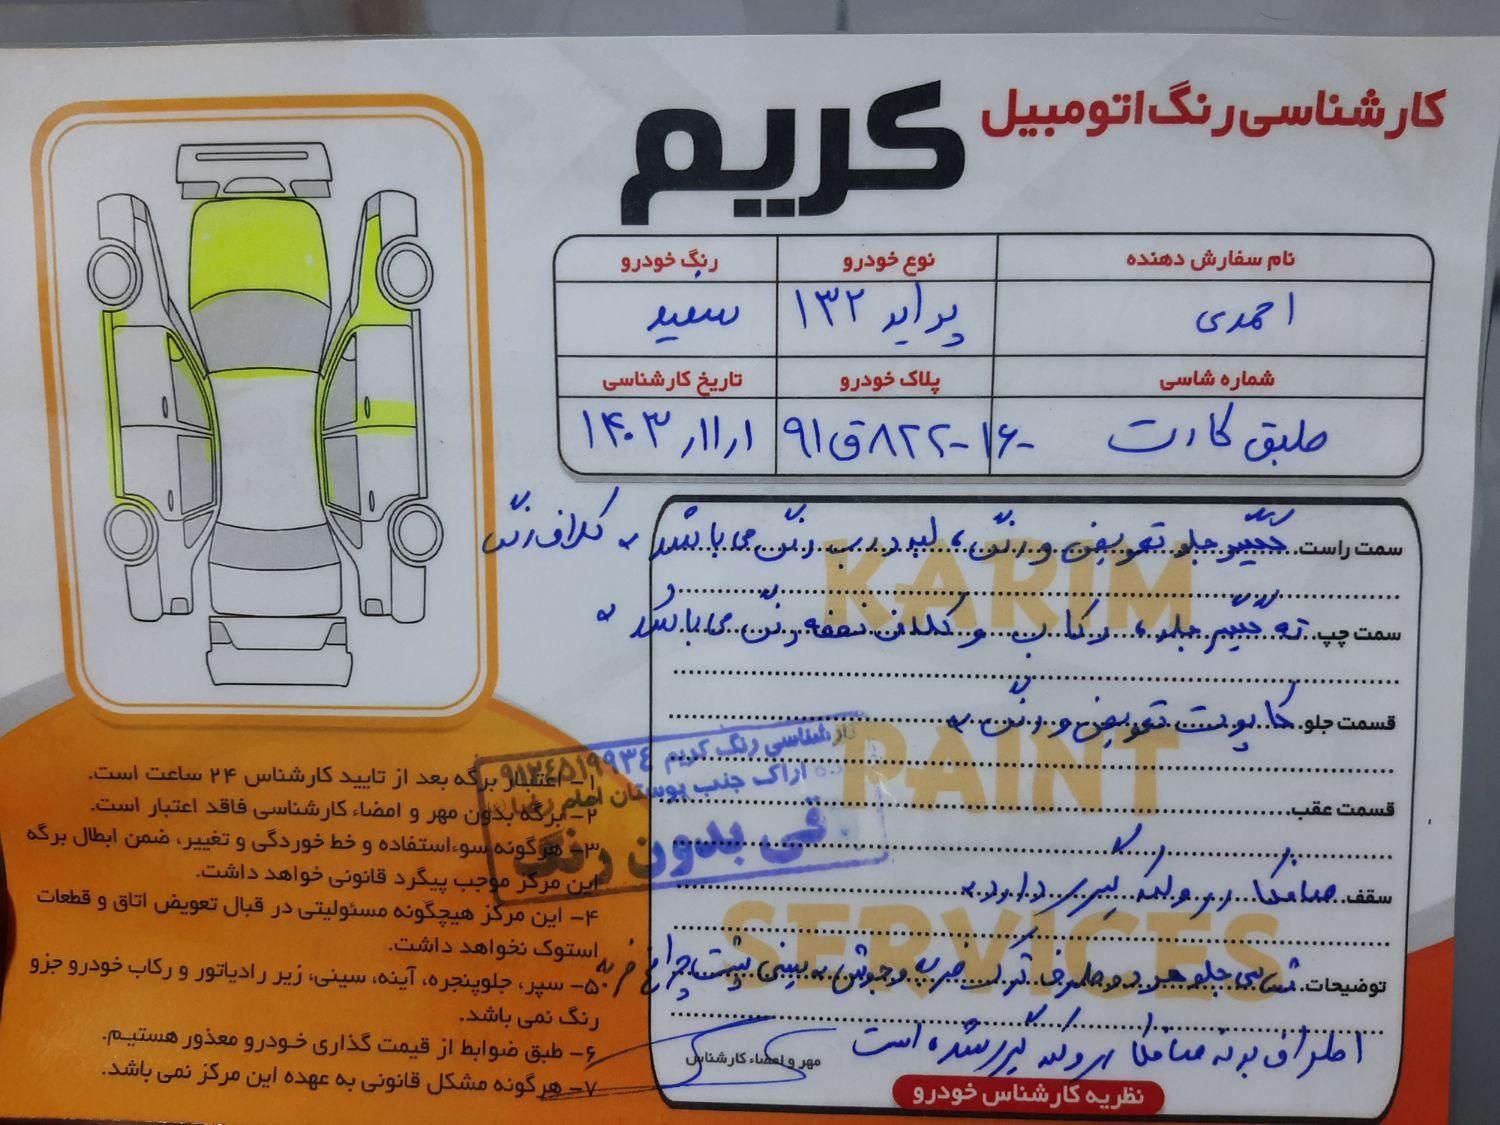 کارشناسی رنگ اتومبیل
کریم
نام سفارش دهنده
نوع خودرو
رنگ خودرو
احمدی
پراید ۱۳۲
سفید
شماره شاسی
پلاک خودرو
تاریخ کارشناسی
طبق کارت
۹۱ق۸۲۲-۱۶-
KARIM
PAINT
SERVICES
سمت راست گلگیر جلو تعویض و رنگ، لبه درب رنگ می باشد کلاف رنگ
سمت چپ ته گلگیر جلو، رکاب و کلاف نصفه رنگ می باشد
قسمت جلو کاپوت تعویض و رنگ
قسمت عقب
سقف صافکاری و لکه گیری دارد
توضیحات شاسی جلو هر دو طرف ترک ضربه و جوش سینی پشت چراغ ضربه
اطراف بدنه صافکاری و لکه گیری شده است
مهر و امضاء کارشناس
نظریه کارشناس خودرو
کارشناسی رنگ کریم ۰۹۱۲۴۵۱۹۹۳۴
اراک جنب بوستان امام رضا
فی بدون رنگ
۱- اعتبار برگه بعد از تایید کارشناس ۲۴ ساعت است.
۲- برگه بدون مهر و امضاء کارشناسی فاقد اعتبار است.
۳- هرگونه سوءاستفاده و خط خوردگی و تغییر، ضمن ابطال برگه
این مرکز موجب پیگرد قانونی خواهد داشت.
۴- این مرکز هیچگونه مسئولیتی در قبال تعویض اتاق و قطعات
استوک نخواهد داشت.
۵- سپر، جلوپنجره، آینه، سینی، زیر رادیاتور و رکاب خودرو جزو
رنگ نمی باشد.
۶- طبق ضوابط از قیمت گذاری خودرو معذور هستیم.
۷- هرگونه مشکل قانونی به عهده این مرکز نمی باشد.